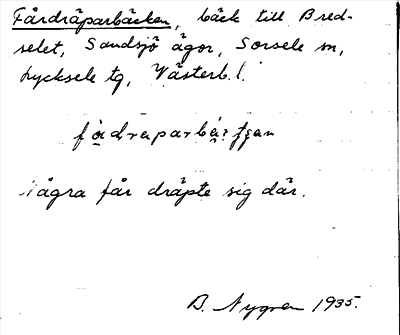 Fårdråparbäcken, bäck till Bred-
selet, Sandsjö ägor, Sorsele sn,
Lycksele tg, Västerb. l.
Några får dräpte sig där.
B. Nygren 1935.